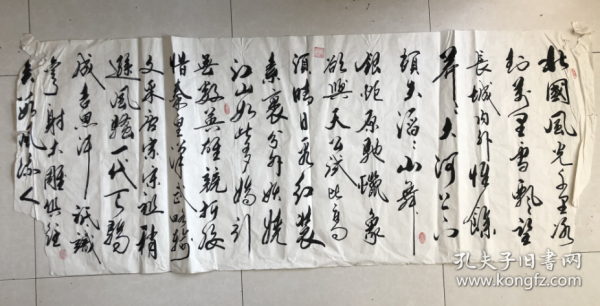 北國風光千里冰
封萬里雪飄望
長城内外惟餘
莽々大河上下
頓失滔々山舞
銀蛇原馳蠟象
欲與天公試比高
須晴日看紅裝
素裹分外妖嬈
江山如此多嬌引
無數英雄競折腰
惜秦皇漢武略輸
文采唐宗宋祖稍
遜風騷一代天驕
成吉思汗祇識
彎射大雕俱往
矣數風流人
孔夫子旧书网
www.kongfz.com